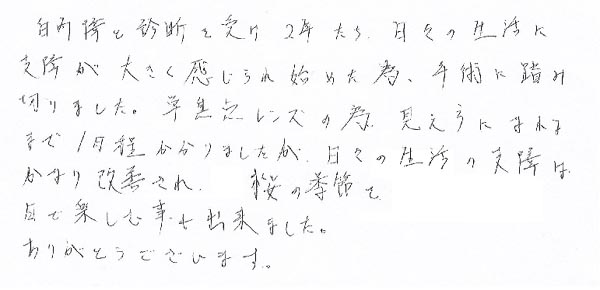 白内障と診断を受け2年たち、日々の生活に
支障が大きく感じられ始めた為、手術に踏み
切りました。単焦点レンズの為、見え方になれる
まで1ヶ月程かかりましたが、日々の生活の支障は
かなり改善され、桜の季節を
目で楽しむ事も出来ました。
ありがとうございます。